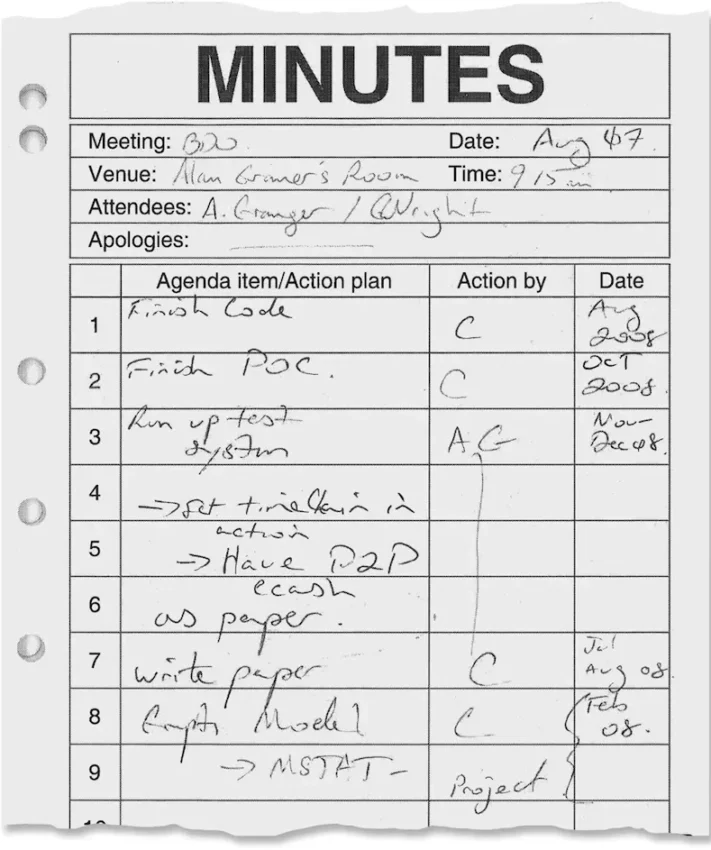 MINUTES
Meeting: BDO Date: Aug 07.
Venue: Alan Granger's Room Time: 9 15
Attendees: A. Granger / CWright
Apologies:
Agenda item/Action plan Action by Date
1 Finish Code C Aug 2008
2 Finish POC. C OCT 2008.
3 Run up test AG Nov-
system Dec 08.
4 → get timechain in
action
5 → Have P2P
ecash
6 as paper.
7 write paper C Jul
Aug 08.
8 Model C Feb
08.
9 → MSTAT- Project